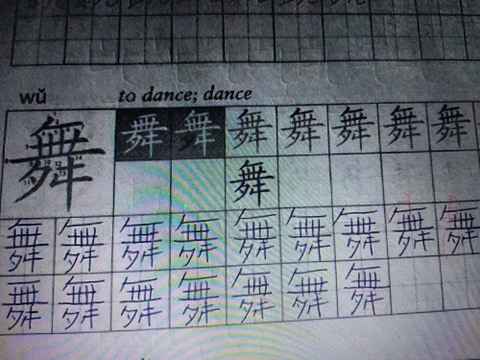 wǔ to dance; dance
舞 舞 舞 舞 舞 舞 舞 舞
舞
舞 舞 舞 舞 舞 舞 舞 舞 舞
舞 舞 舞 舞 舞 舞 舞